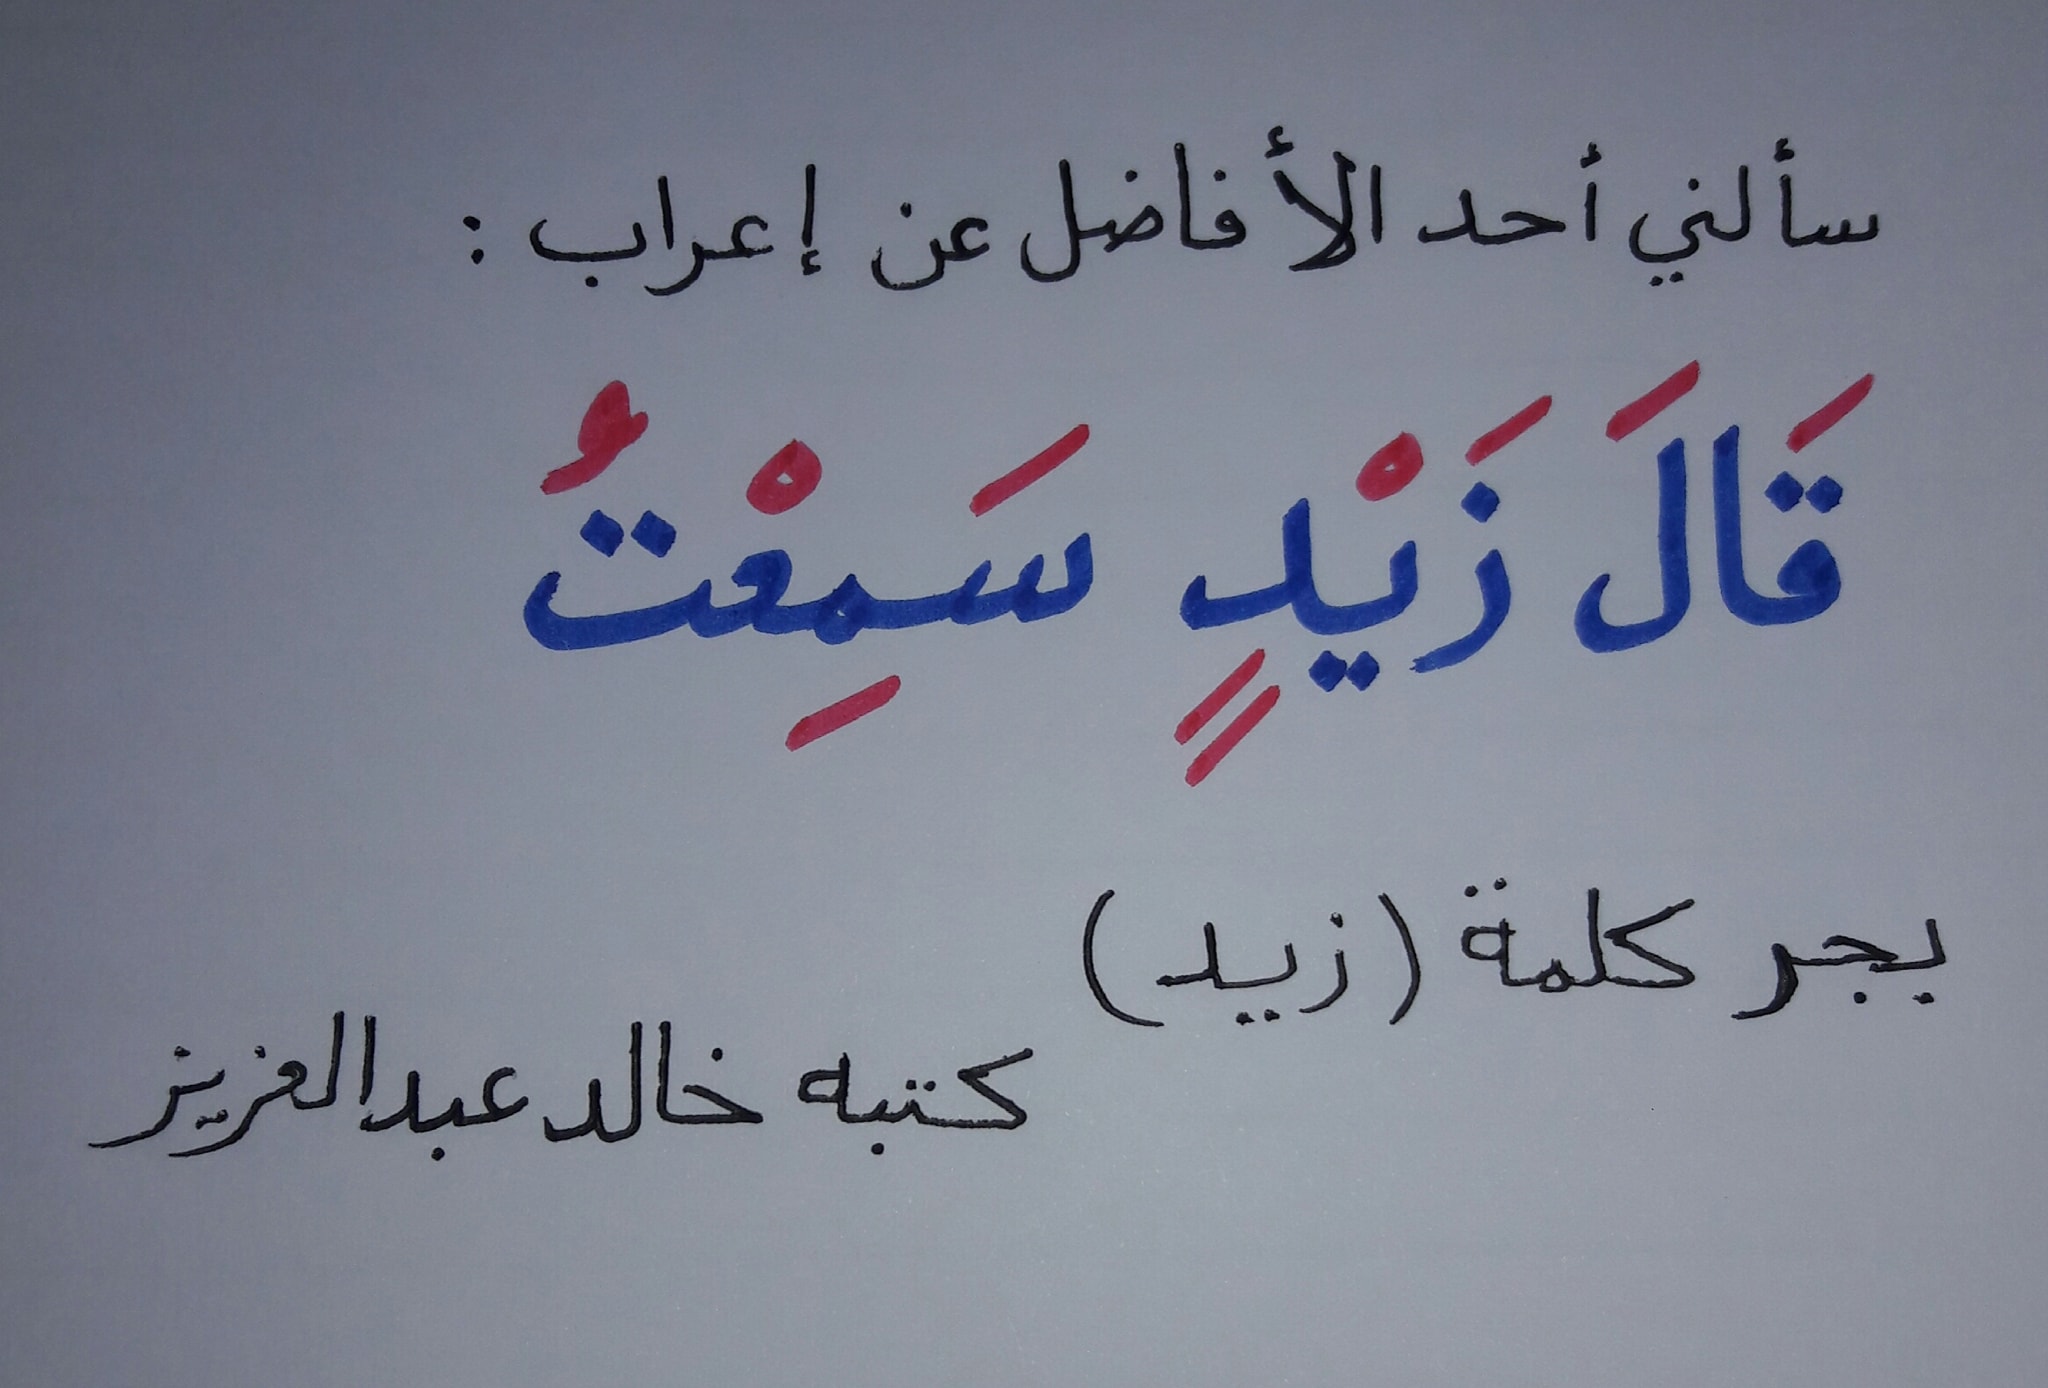 سألني أحد الأفاضل عن إعراب :
قَالَ زَيْدٍ سَمِعْتُ
بجر كلمة (زيد)
كتبه خالد عبدالعزيز